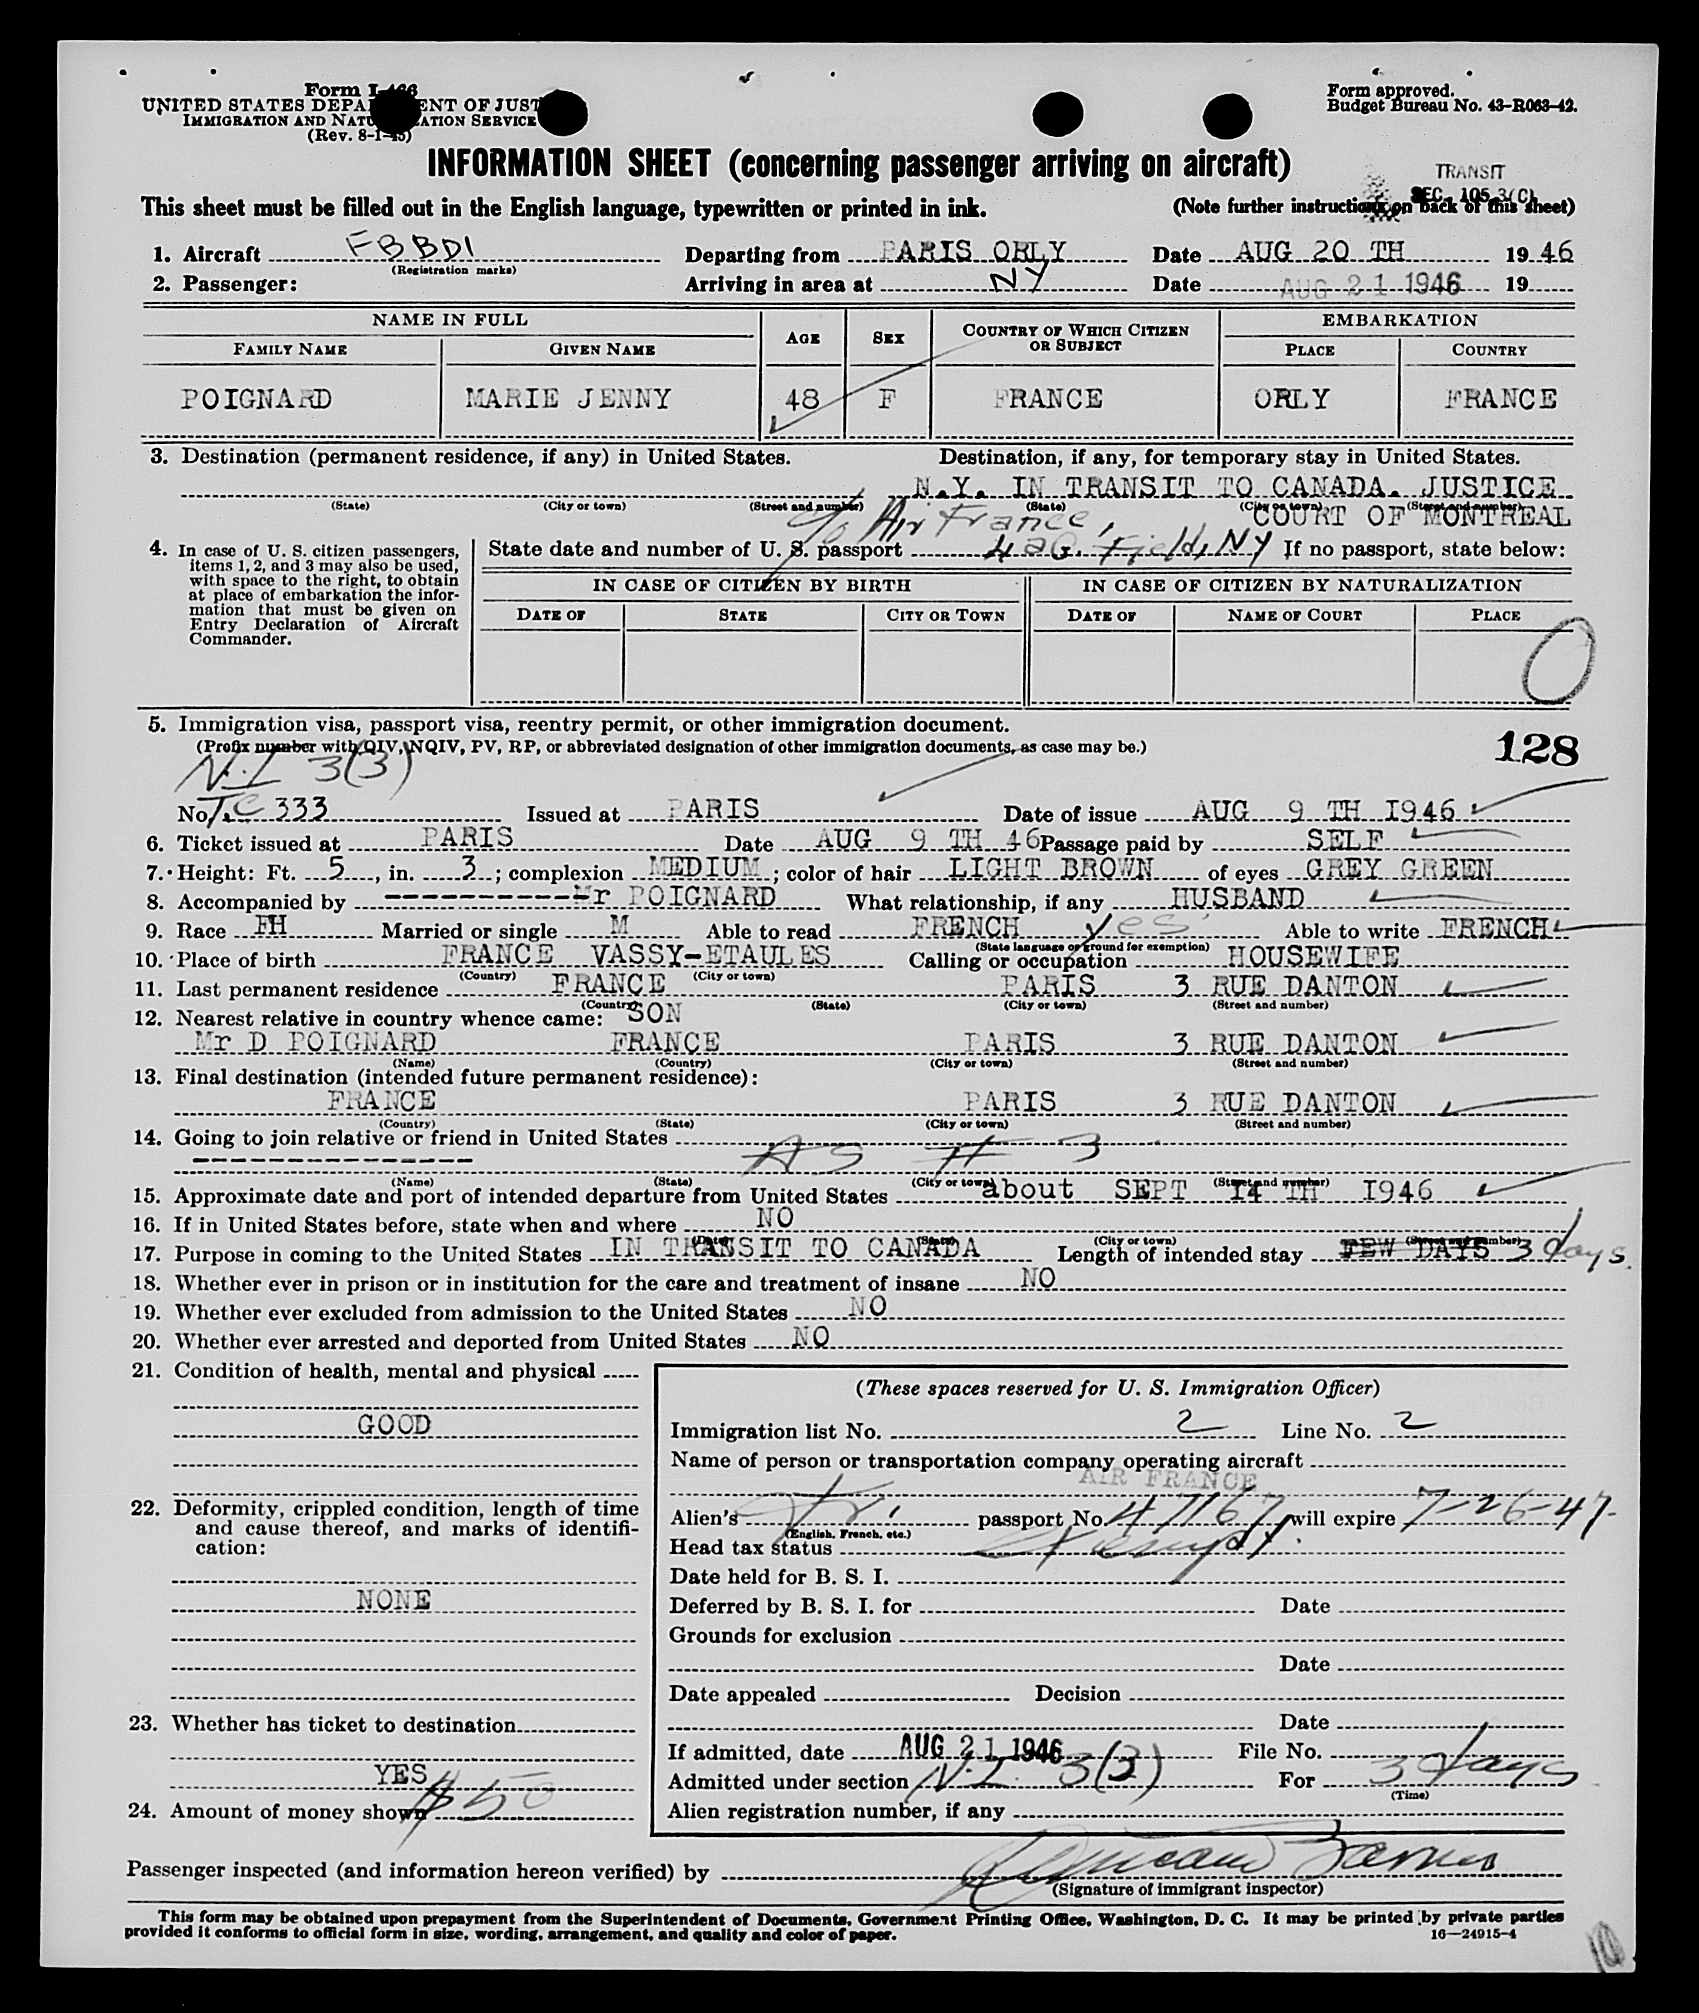 Form I-466
UNITED STATES DEPARTMENT OF JUSTICE
IMMIGRATION AND NATURALIZATION SERVICE
(Rev. 8-1-45)
Form approved.
Budget Bureau No. 43-R063-42.
INFORMATION SHEET (concerning passenger arriving on aircraft)
TRANSIT
SEC. 105.3(C)
This sheet must be filled out in the English language, typewritten or printed in ink. (Note further instructions on back of this sheet)
1. Aircraft FBBDI Departing from PARIS ORLY Date AUG 20 TH 19 46
(Registration marks)
2. Passenger: Arriving in area at NY Date AUG 21 1946 19
NAME IN FULL AGE SEX COUNTRY OF WHICH CITIZEN OR SUBJECT EMBARKATION
FAMILY NAME GIVEN NAME PLACE COUNTRY
POIGNARD MARIE JENNY 48 F FRANCE ORLY FRANCE
3. Destination (permanent residence, if any) in United States. Destination, if any, for temporary stay in United States.
N.Y. IN TRANSIT TO CANADA. JUSTICE
(State) (City or town) (Street and number) (State) (City or town) (Street and number)
COURT OF MONTREAL
c/o Air France,
4. In case of U. S. citizen passengers, items 1, 2, and 3 may also be used, with space to the right, to obtain at place of embarkation the information that must be given on Entry Declaration of Aircraft Commander.
State date and number of U. S. passport LaG. Field, NY If no passport, state below:
IN CASE OF CITIZEN BY BIRTH IN CASE OF CITIZEN BY NATURALIZATION
DATE OF STATE CITY OR TOWN DATE OF NAME OF COURT PLACE
0
5. Immigration visa, passport visa, reentry permit, or other immigration document.
(Prefix number with QIV, NQIV, PV, RP, or abbreviated designation of other immigration documents, as case may be.)
128
N.I 3(3)
No. TC 333 Issued at PARIS Date of issue AUG 9 TH I946
6. Ticket issued at PARIS Date AUG 9 TH 46 Passage paid by SELF
7. Height: Ft. 5, in. 3; complexion MEDIUM; color of hair LIGHT BROWN of eyes GREY GREEN
8. Accompanied by ------------Mr POIGNARD What relationship, if any HUSBAND
9. Race FH Married or single M Able to read FRENCH yes Able to write FRENCH
(State language or ground for exemption)
10. Place of birth FRANCE VASSY-ETAULES Calling or occupation HOUSEWIFE
(Country) (City or town)
11. Last permanent residence FRANCE PARIS 3 RUE DANTON
(Country) (State) (City or town) (Street and number)
12. Nearest relative in country whence came: SON
Mr D POIGNARD FRANCE PARIS 3 RUE DANTON
(Name) (Country) (City or town) (Street and number)
13. Final destination (intended future permanent residence):
FRANCE PARIS 3 RUE DANTON
(Country) (State) (City or town) (Street and number)
14. Going to join relative or friend in United States
---------------- AS # 3
(Name) (State) (City or town) (Street and number)
15. Approximate date and port of intended departure from United States about SEPT I4 TH I946
16. If in United States before, state when and where NO
(Date) (State) (City or town) (Street and number)
17. Purpose in coming to the United States IN TRANSIT TO CANADA Length of intended stay FEW DAYS 3 days.
18. Whether ever in prison or in institution for the care and treatment of insane NO
19. Whether ever excluded from admission to the United States NO
20. Whether ever arrested and deported from United States NO
21. Condition of health, mental and physical
GOOD
22. Deformity, crippled condition, length of time and cause thereof, and marks of identification:
NONE
23. Whether has ticket to destination
YES
24. Amount of money shown $50
(These spaces reserved for U. S. Immigration Officer)
Immigration list No. 2 Line No. 2
Name of person or transportation company operating aircraft
AIR FRANCE
Alien's Fr. passport No. 47167 will expire 7-26-47
(English, French, etc.)
Head tax status
Date held for B. S. I.
Deferred by B. S. I. for Date
Grounds for exclusion
Date
Date appealed Decision
Date
If admitted, date AUG 21 1946 File No.
Admitted under section N.I. 3(3) For 3 days
(Time)
Alien registration number, if any
Passenger inspected (and information hereon verified) by
(Signature of immigrant inspector)
This form may be obtained upon prepayment from the Superintendent of Documents, Government Printing Office, Washington, D. C. It may be printed by private parties
provided it conforms to official form in size, wording, arrangement, and quality and color of paper. 16—24915-4